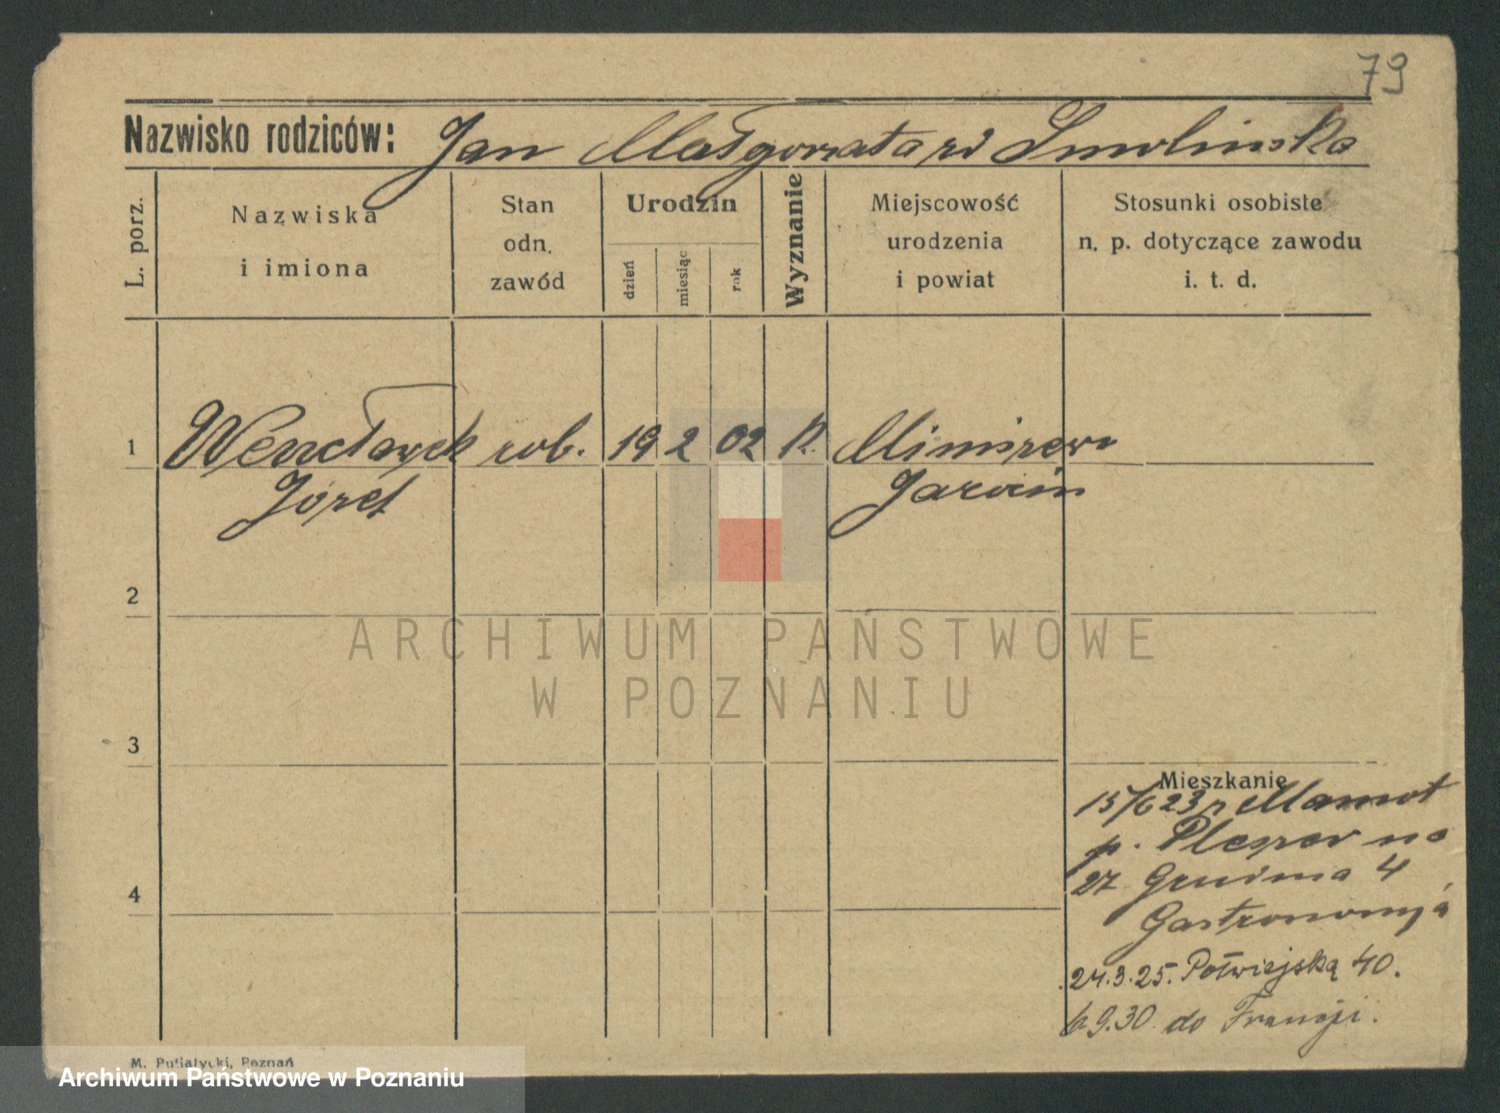 79
Nazwisko rodziców: Jan Małgorzata zd Smolińska
L. porz.
Nazwiska i imiona
Stan odn. zawód
Urodzin
dzień
miesiąc
rok
Wyznanie
Miejscowość urodzenia i powiat
Stosunki osobiste n. p. dotyczące zawodu i. t. d.
1 Wencławek rob. 19 2 02 K.
Józef Jarocin
2
ARCHIWUM PAŃSTWOWE
W POZNANIU
3
Mieszkanie
15/6 23 z Mamot
p. Pleszew na
27 Grudnia 4
Gastronomja
4
24.3.25. Półwiejską 40.
6.9.30 do Francji.
M. Putiatycki, Poznań
Archiwum Państwowe w Poznaniu